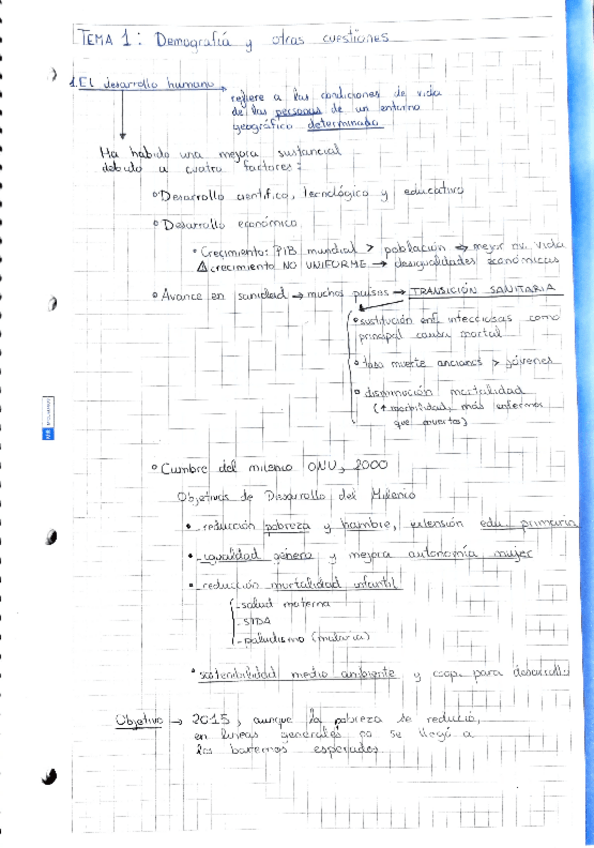 TEMA 1: Demografía y otras cuestiones
1. El desarrollo humano →
refiere a las condiciones de vida
de las personas de un entorno
geográfico determinado
Ha habido una mejora sustancial
debido a cuatro factores:
° Desarrollo científico, tecnológico y educativo
° Desarrollo económico
• Crecimiento: PIB mundial > población → mejor niv. vida
△ crecimiento NO UNIFORME → desigualdades económicas
° Avance en sanidad → muchos países → TRANSICIÓN SANITARIA
° sustitución enf. infecciosas como
principal causa mortal
° tasa muerte ancianos > jóvenes
° disminución mortalidad
(↑ morbilidad, más enfermos
que muertos)
° Cumbre del milenio ONU, 2000
Objetivos de Desarrollo del Milenio
• reducción pobreza y hambre, extensión edu. primaria
• igualdad género y mejora autonomía mujer
• reducción mortalidad infantil
- salud materna
- SIDA
- paludismo (malaria)
• sostenibilidad medio ambiente y coop. para desarrollo
Objetivo → 2015, aunque la pobreza se redujo,
en líneas generales no se llegó a
los baremos esperados.